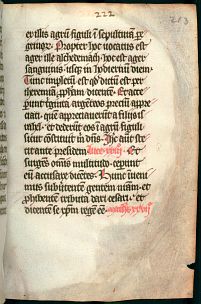 222
213
er illis agrū figuli ī sepulturā pe
grinoꝝ. Propter hoc vocatus est
ager ille acheldemach, hoc est ager
sanguinis, usq; in hodiernū diem
Tunc impletū est qd dictū est per
iheremiā, prophetā dicentē. Et acce
perunt triginta argenteos preciū appre
ciati, que appreciauerūt a filijs is
rahel, et dederūt eos ī agrū figuli
sicut cōstituit m̄ dn̄s. Ihc aūt ste
tit ante presidem. Et
surgens omīs multitudo ceperunt
eū accusare dicētes. Hunc inueni
mus subuertentē gentem nr̄am, et
prohibentē tributa dari cesari, et
dicentē se xp̄m regē eē